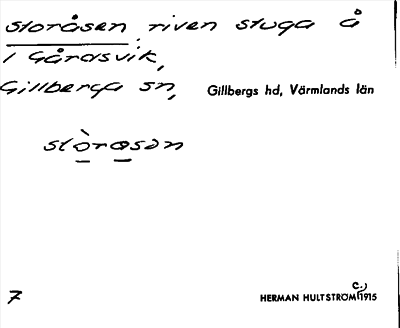 Storåsen riven stuga å
1 Gårdsvik,
Gillberga sn, Gillbergs hd, Värmlands län
stòrasan
7
HERMAN HULTSTRÖM c.) 1915